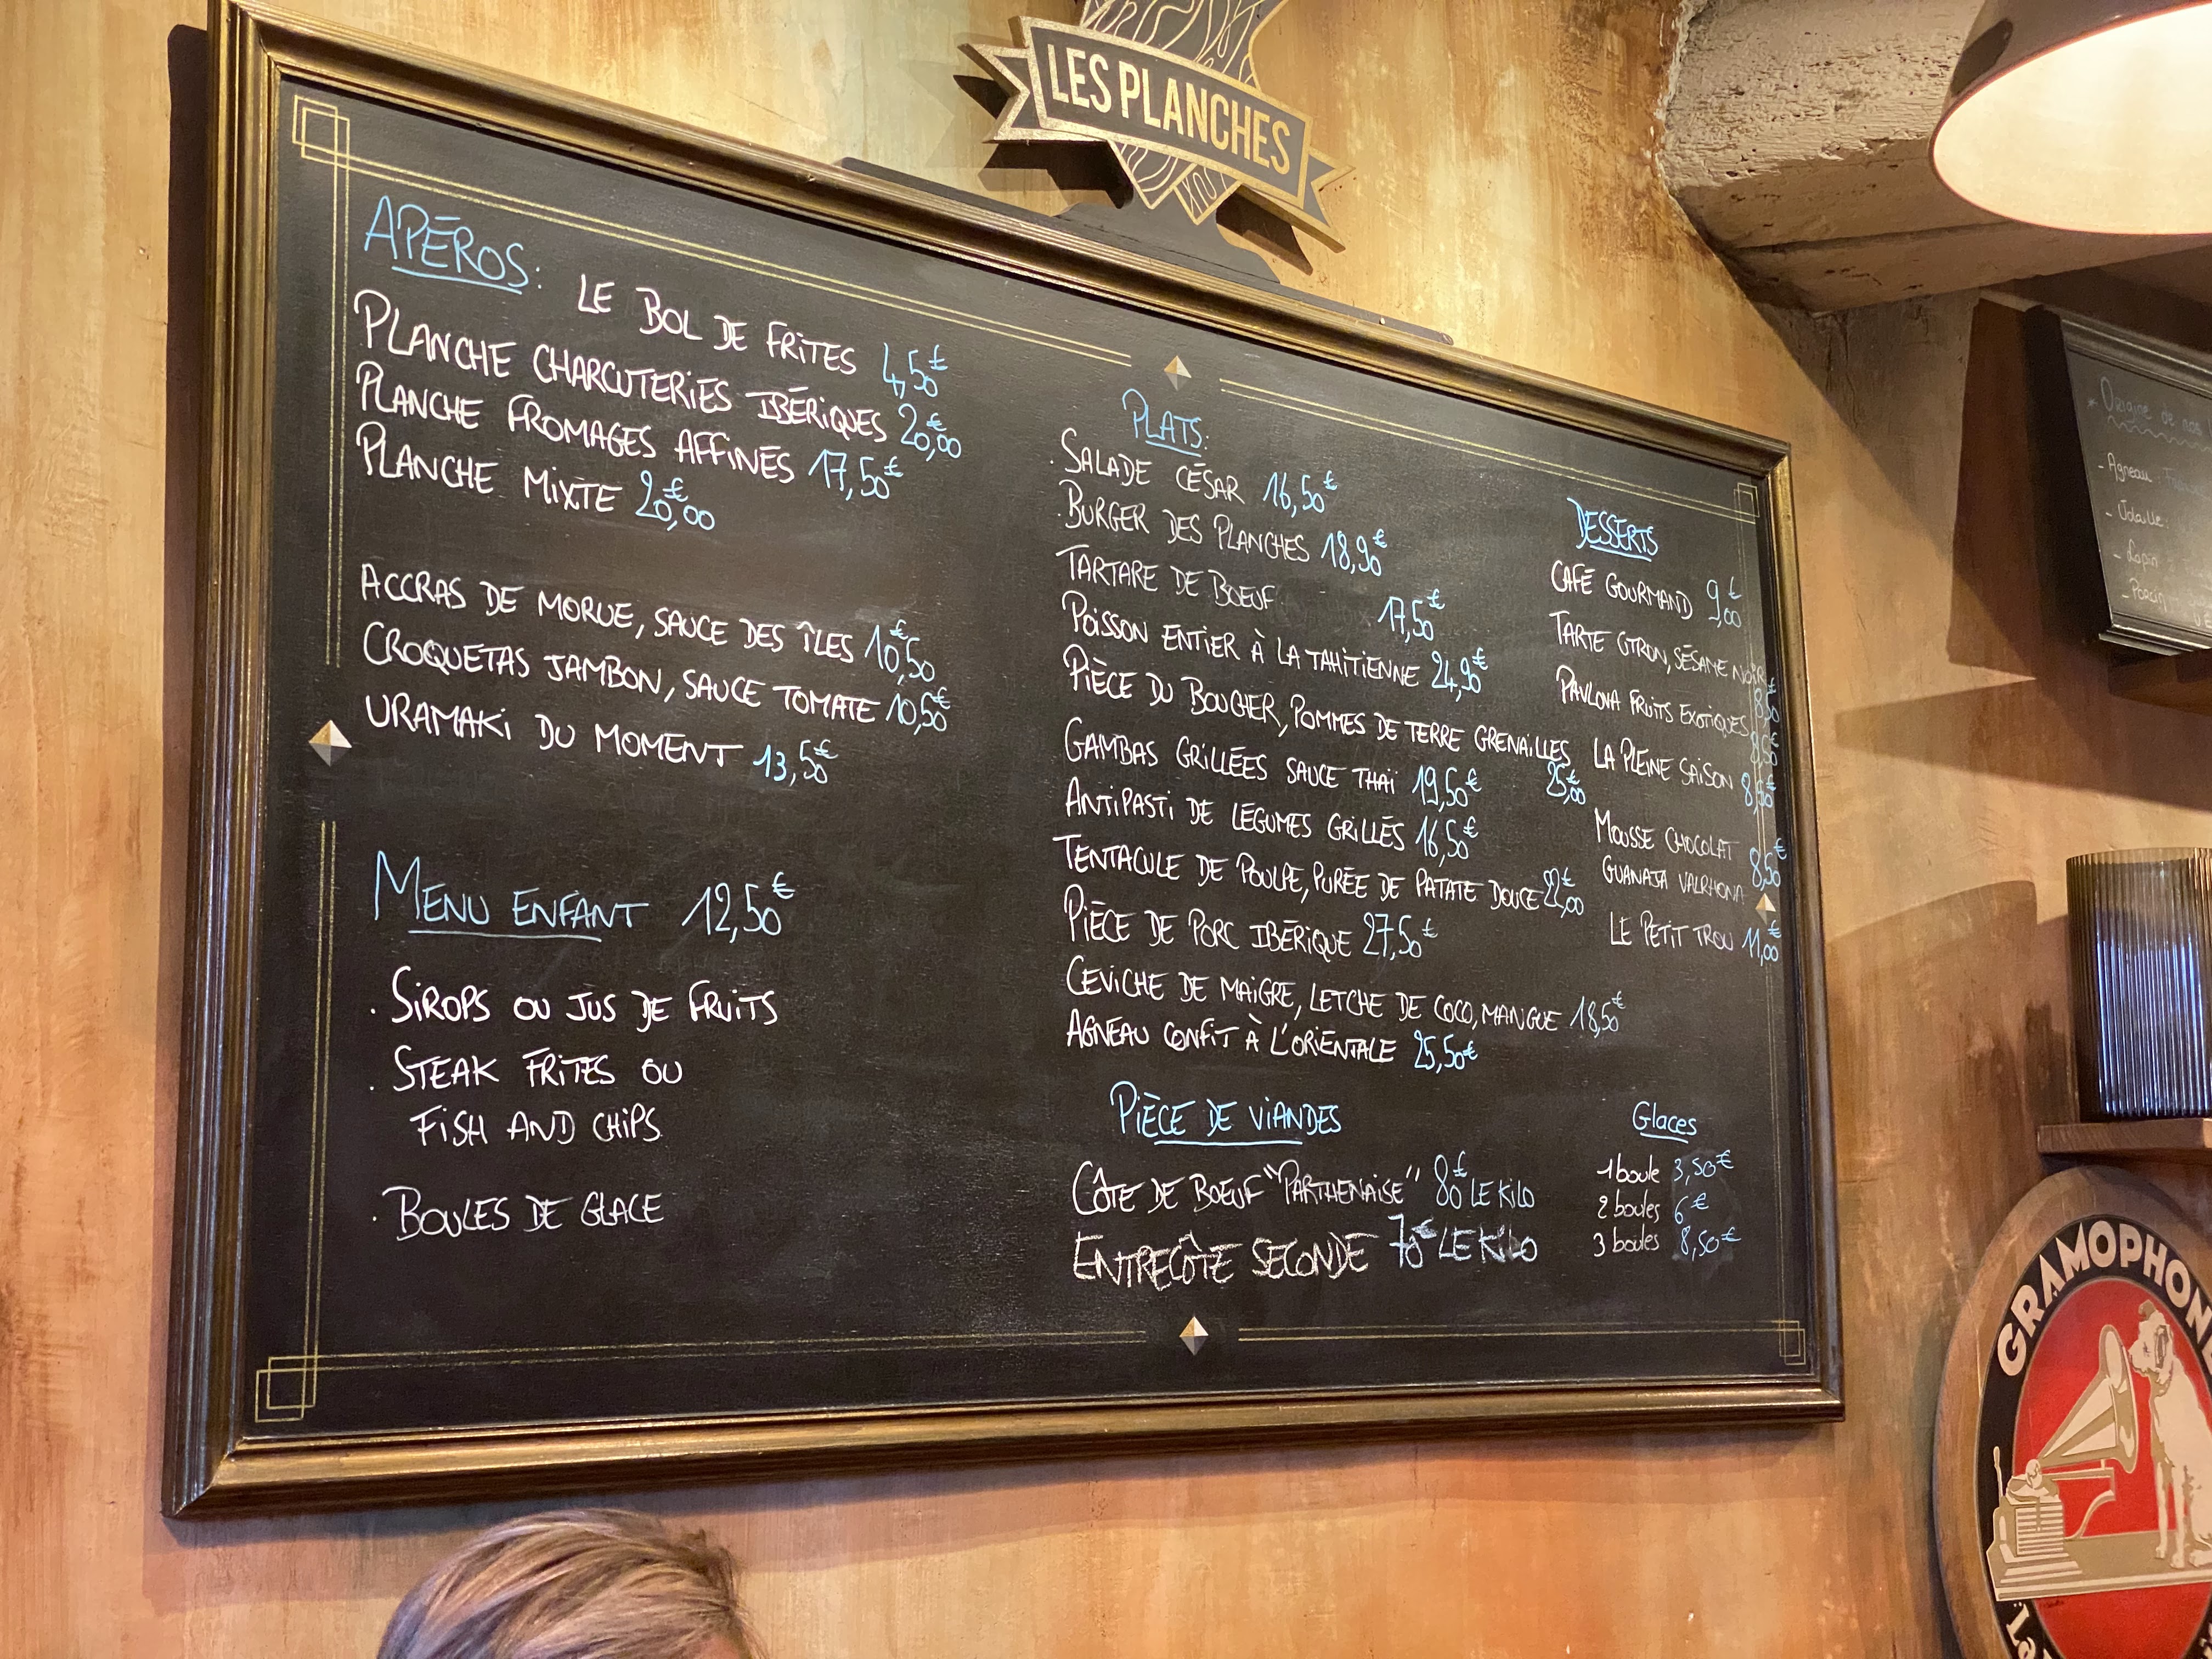 LES PLANCHES
APÉROS:
LE BOL DE FRITES 4,50€
PLANCHE CHARCUTERIES IBÉRIQUES 20,00€
PLANCHE FROMAGES AFFINÉS 17,50€
PLANCHE MIXTE 20,00€
ACCRAS DE MORUE, SAUCE DES ÎLES 10,50€
CROQUETAS JAMBON, SAUCE TOMATE 10,50€
URAMAKI DU MOMENT 13,50€
MENU ENFANT 12,50€
. SIROPS OU JUS DE FRUITS
. STEAK FRITES OU
FISH AND CHIPS
. BOULES DE GLACE
PLATS:
. SALADE CÉSAR 16,50€
. BURGER DES PLANCHES 18,90€
TARTARE DE BOEUF 17,50€
POISSON ENTIER À LA TAHITIENNE 24,90€
PIÈCE DU BOUCHER, POMMES DE TERRE GRENAILLES 25,00€
GAMBAS GRILLÉES SAUCE THAÏ 19,50€
ANTIPASTI DE LÉGUMES GRILLÉS 16,50€
TENTACULE DE POULPE, PURÉE DE PATATE DOUCE 22,00€
PIÈCE DE PORC IBÉRIQUE 27,50€
CEVICHE DE MAIGRE, LETCHE DE COCO, MANGUE 18,50€
AGNEAU CONFIT À L'ORIENTALE 25,50€
PIÈCE DE VIANDES
CÔTE DE BOEUF "PARTHENAISE" 80€ LE KILO
ENTRECÔTE SECONDE 70€ LE KILO
DESSERTS
CAFÉ GOURMAND 9,00€
TARTE CITRON, SÉSAME NOIR 8,50€
PAVLOVA FRUITS EXOTIQUES 8,50€
LA PLEINE SAISON 8,50€
MOUSSE CHOCOLAT 8,50€
GUANAJA VALRHONA
LE PETIT TROU 11,00€
Glaces
1 boule 3,50€
2 boules 6€
3 boules 8,50€
* Origine de nos
- Agneau:
- Volaille:
- Lapin
- Porcin
GRAMOPHONE